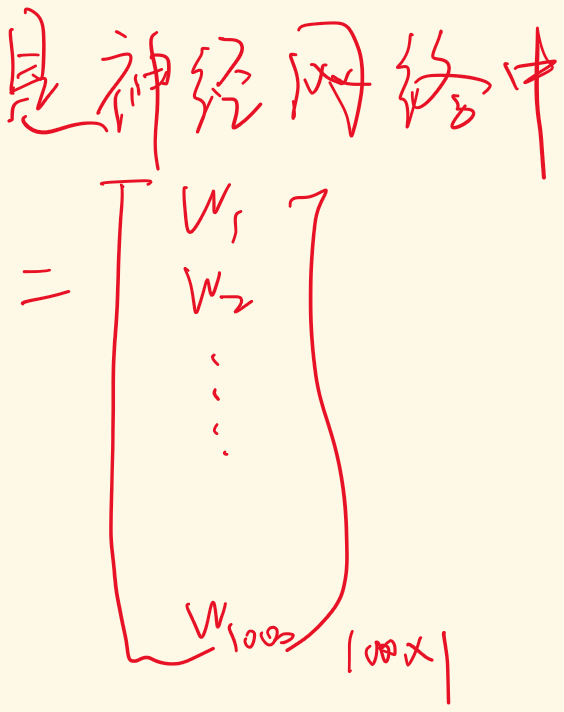 息神经网络中
= [ W1
W2
⋮
W1000 ] 1000×1